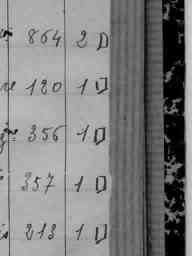 864 2
120 1
356 1
357 1
213 1